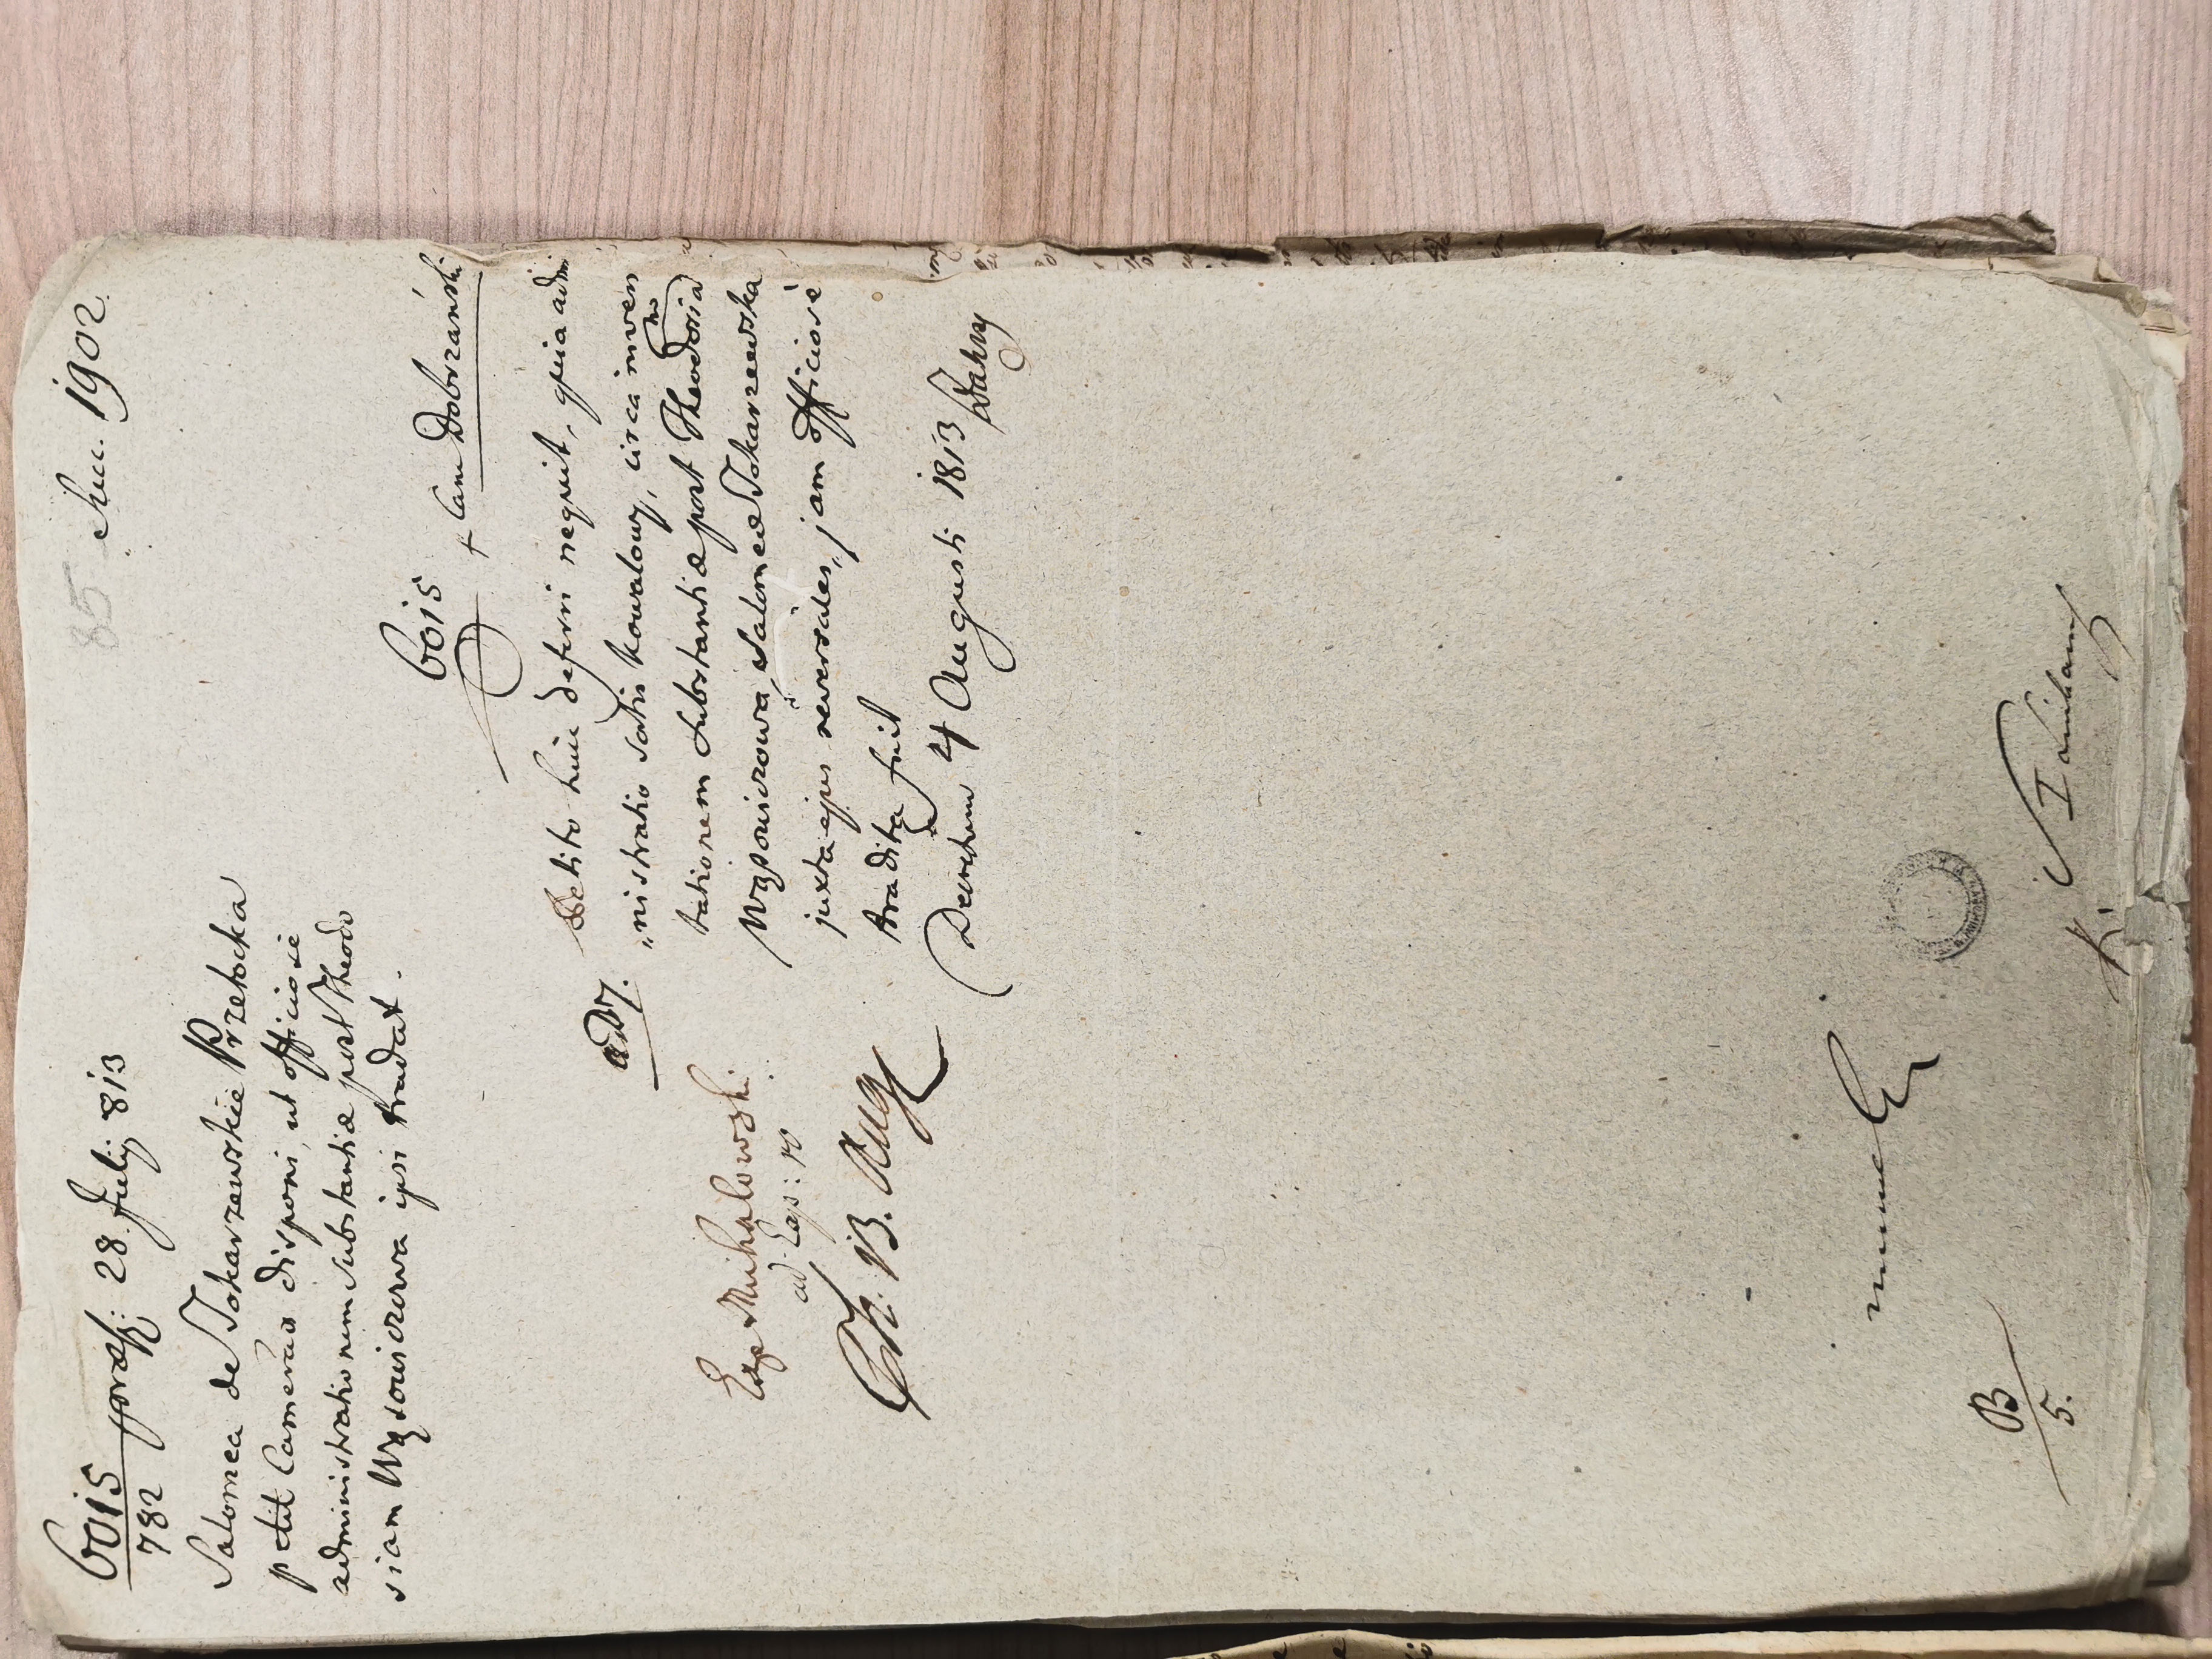 85 1902
6015 præs: 28 July 813
782
Salomea de Tokarzewskie Przetocka
petit Cameraa disponi, ut officiosè
administrationem substantiæ post Theodo
siam Wysowiczowa ipsi tradat.
6015
Cam Dobrzański
adM. Petito huic deferri nequit, quia admi
„nistratio satis kowalowy, circa inven
tationem substantiæ post Theodosia
Wysowiczowa, Salomeæ Tokarzewska
juxta ejus reversales, jam officiosè
tradita fuit
Decretum 4 Augusti 1813
Exp Michalowski
ad Exp: 10
B. Aug
B
5.
K.